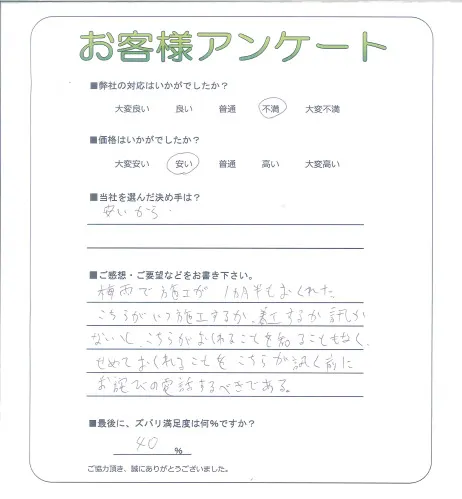 お客様アンケート
■弊社の対応はいかがでしたか？
大変良い 良い 普通 不満 大変不満
■価格はいかがでしたか？
大変安い 安い 普通 高い 大変高い
■当社を選んだ決め手は？
安いから.
■ご感想・ご要望などをお書き下さい。
梅雨で施工が 1カ月半もおくれた
こちらがいつ施工するか、着工するか 訊か
ないと、こちらがおくれることを知ることもなく、
せめておくれることを こちらが訊く前に
お詫びの電話するべきである。
■最後に、ズバリ満足度は何％ですか？
40 %
ご協力頂き、誠にありがとうございました。